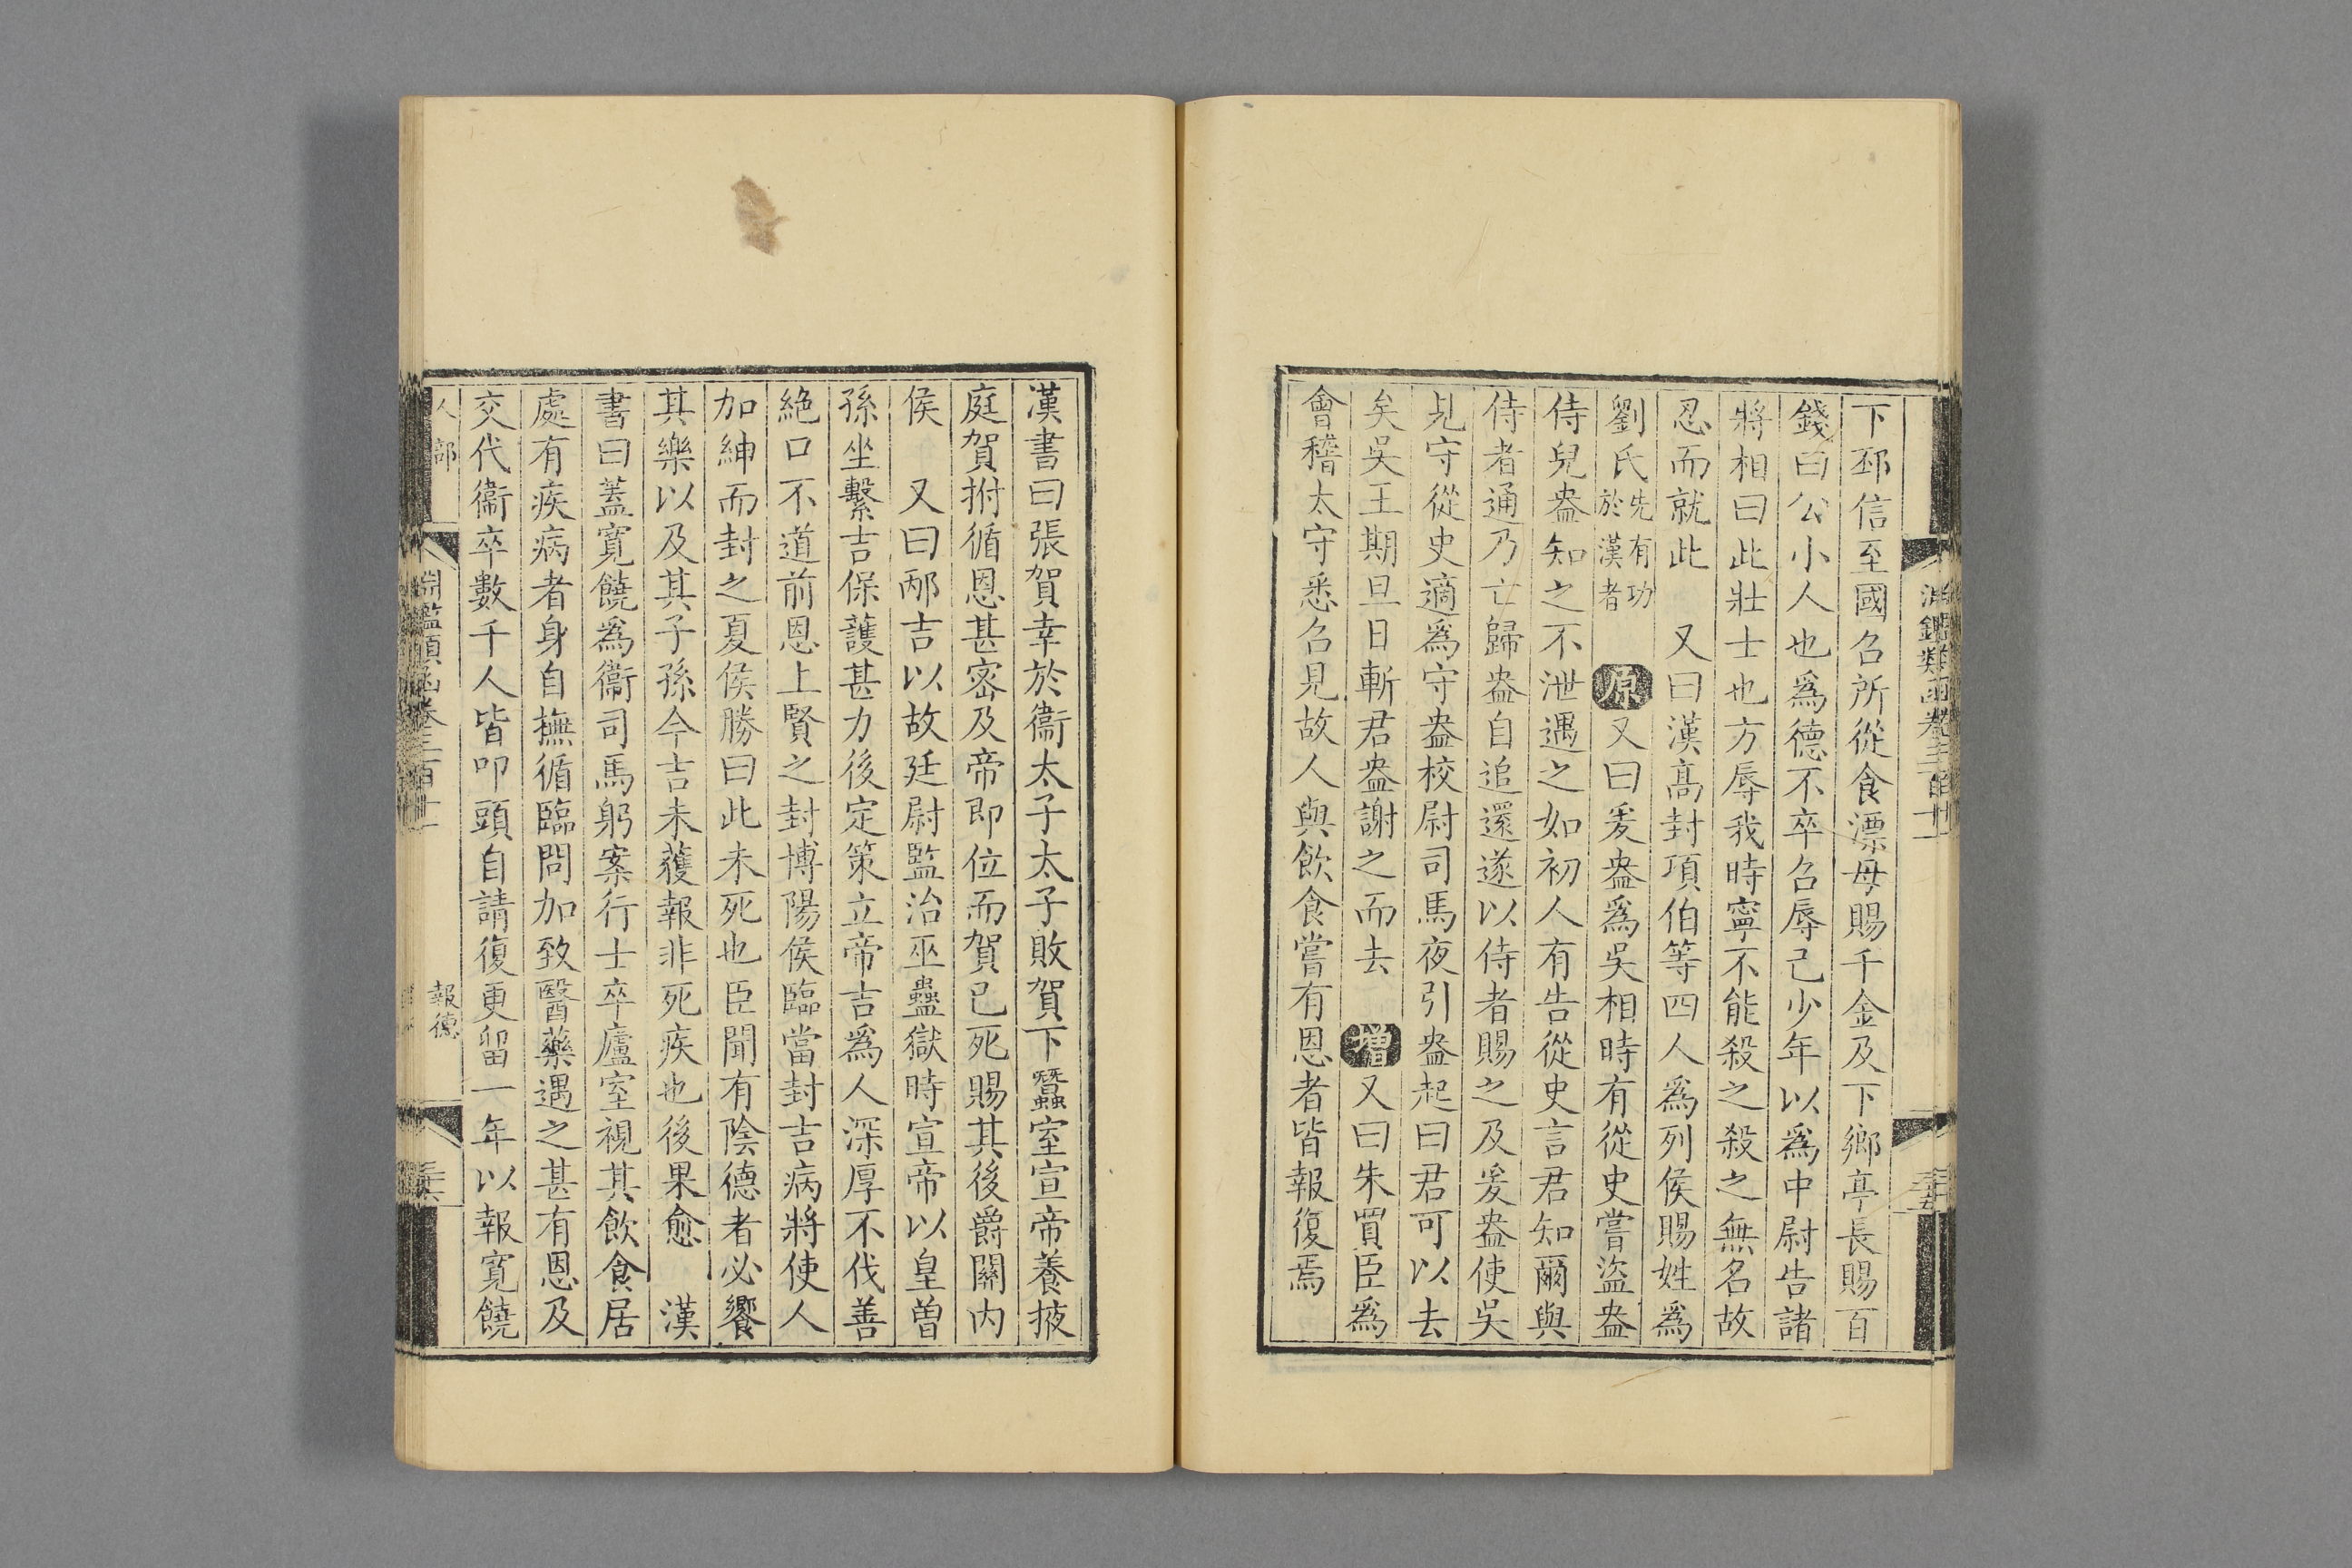 下邳信至國召所從食漂母賜千金及下鄉亭長賜百
錢曰公小人也爲德不卒召辱己少年以爲中尉告諸
將相曰此壯士也方辱我時寧不能殺之殺之無名故
忍而就此　又曰漢高封項伯等四人爲列侯賜姓爲
劉氏先有功於漢者　原又曰爰盎爲吳相時有從史嘗盜盎
侍兒盎知之不泄遇之如初人有告從史言君知爾與
侍者通乃亡歸盎自追還遂以侍者賜之及爰盎使吳
見守從史適爲守盎校尉司馬夜引盎起曰君可以去
矣吳王期旦日斬君盎謝之而去　增又曰朱買臣爲
會稽太守悉召見故人與飲食嘗有恩者皆報復焉
淵鑑類函卷三百十一
三十五
漢書曰張賀幸於衞太子太子敗賀下蠶室宣帝養掖
庭賀拊循恩甚密及帝即位而賀已死賜其後爵關内
侯　又曰邴吉以故廷尉監治巫蠱獄時宣帝以皇曾
孫坐繫吉保護甚力後定策立帝吉爲人深厚不伐善
絶口不道前恩上賢之封博陽侯臨當封吉病將使人
加紳而封之夏侯勝曰此未死也臣聞有陰德者必饗
其樂以及其子孫今吉未獲報非死疾也後果愈　漢
書曰蓋寬饒爲衞司馬躬案行士卒廬室視其飲食居
處有疾病者身自撫循臨問加致醫藥遇之甚有恩及
交代衞卒數千人皆叩頭自請復更留一年以報寬饒
人部
淵鑑類函卷三百十一
報德
三十六